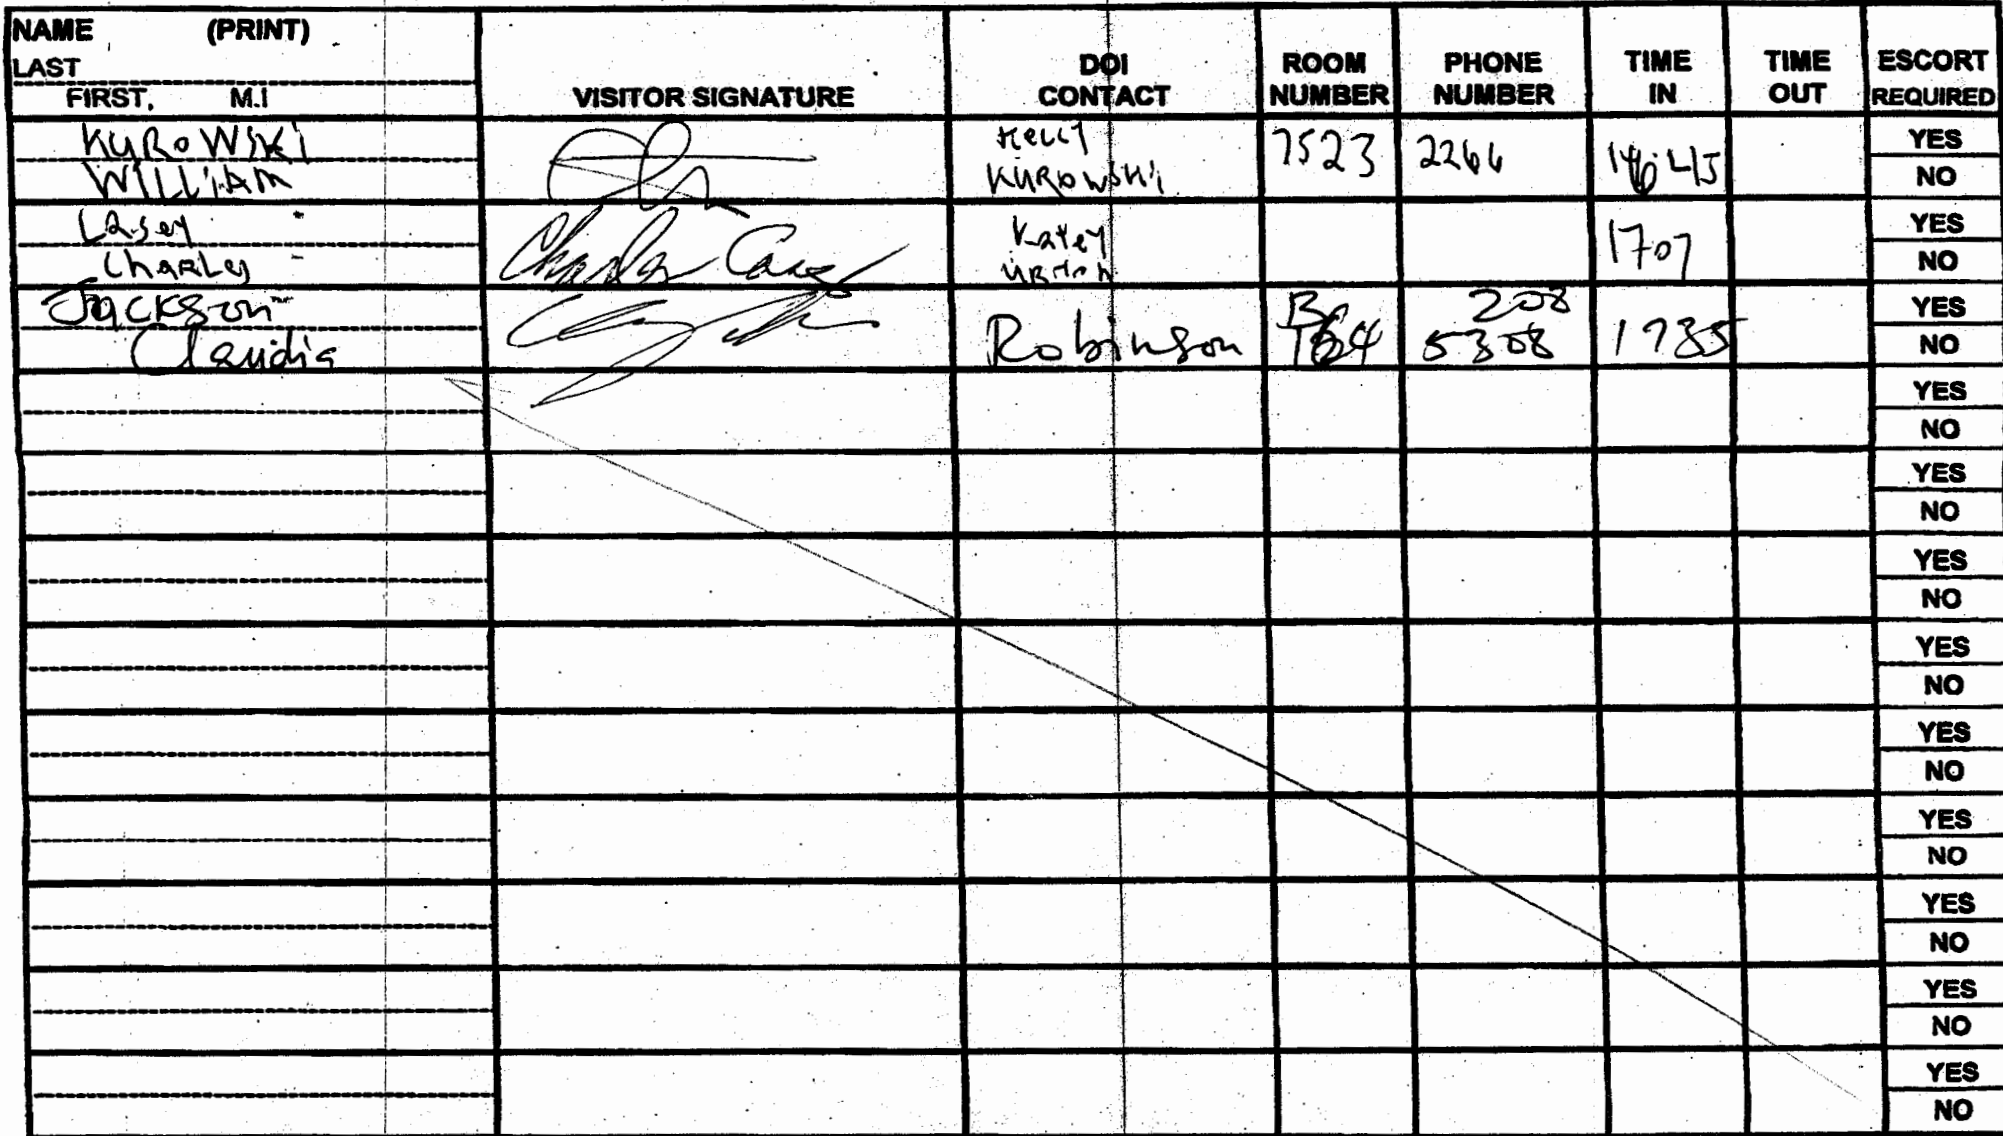 NAME (PRINT)
LAST
FIRST, M.I
VISITOR SIGNATURE
DOI CONTACT
ROOM NUMBER
PHONE NUMBER
TIME IN
TIME OUT
ESCORT REQUIRED
KUROWSKI
WILLIAM
Kelly
KUROWSKI
7523
2266
YES
NO
Casey
Charles
Charles Casey
Katey
1707
YES
NO
Jackson
Claudia
Robinson
208
5308
1735
YES
NO
YES
NO
YES
NO
YES
NO
YES
NO
YES
NO
YES
NO
YES
NO
YES
NO
YES
NO